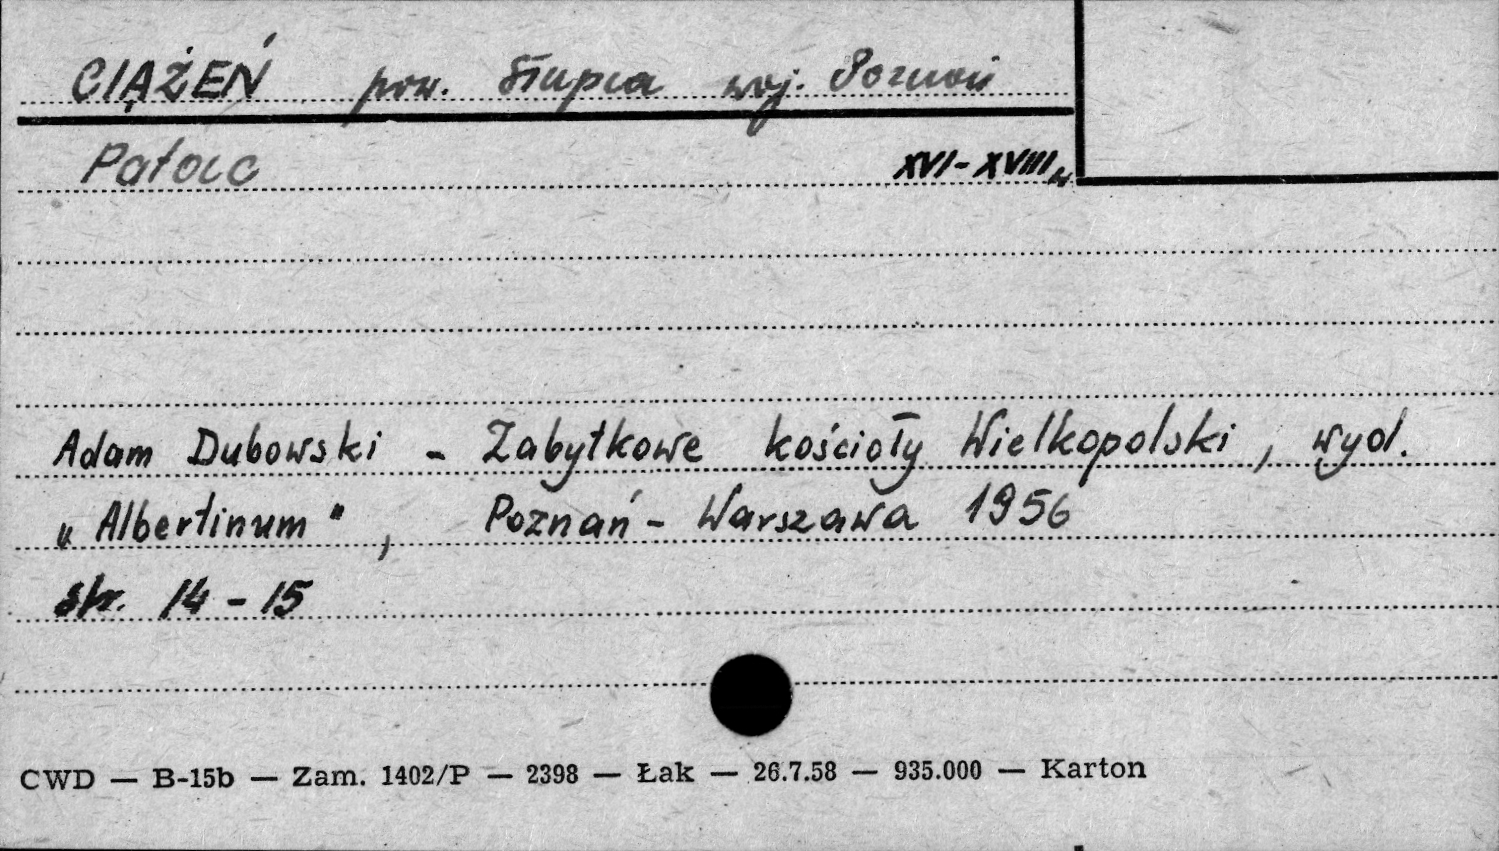 CIĄŻEŃ pow. Słupca woj. Poznań
Pałac XVI-XVIII w
Adam Dubowski - Zabytkowe kościoły Wielkopolski, wyd.
„Albertinum", Poznań - Warszawa 1956
str. 14-15
CWD — B-15b — Zam. 1402/P — 2398 — Łak — 26.7.58 — 935.000 — Karton